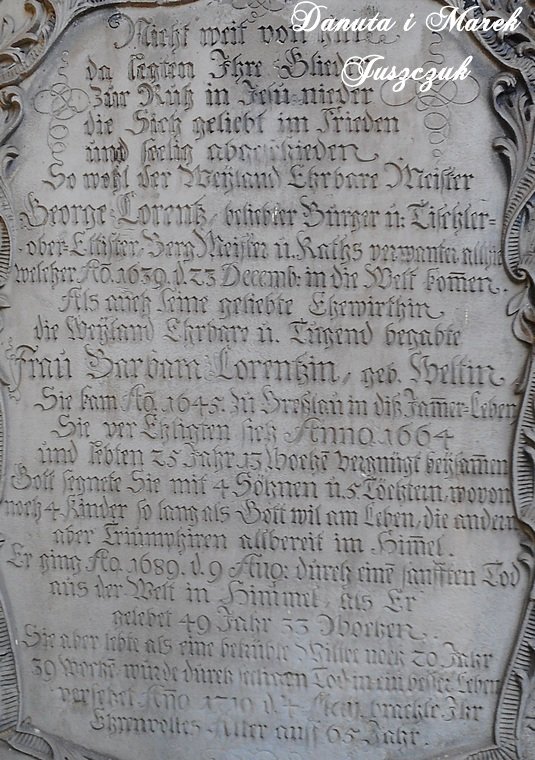 Danuta i Marek
Juszczuk
Nicht weit von
da legten Ihre Glieder
Zur Ruh in Jesu nieder
die Sich geliebt im Frieden
und seelig abgeschieden
So wohl der Weyland Ehrbare Meister
George Lorentz, beliebter Bürger u. Tischler-
ober-Eltister, Berg Meister u. Raths verwanter alhie
welcher Ao. 1639. d. 23 Decemb: in die Welt kom̄en.
Als auch seine geliebte Ehewirthin
die Weyland Ehrbare u. Tugend begabte
Frau Barbara Lorentzin, geb. Weltin
Sie kam Ao. 1645. zu Breßlau in diß Jam̄er-Leben
Sie ver Ehligten sich Anno 1664
und lebten 25 Jahr 13 Wochē vergnügt beysam̄en
Gott segnete Sie mit 4 Söhnen u. 5 Töchtern, wovon
noch 4 Kinder so lang als Gott wil am Leben, die andern
aber Triumphiren allbereit im Him̄el.
Er ging Ao. 1689. d. 9 Aug: durch einē sanfften Tod
aus der Welt in Himmel, als Er
gelebet 49 Jahr 33 Wochen.
Sie aber lebte als eine betrübte Witbe noch 20 Jahr
39 Wochē wurde durch seeligen Tod in ein besser Leben
versetzet Año 1710 d. 4 brachte Ihr
Ehrenvolles Alter auff 65 Jahr.